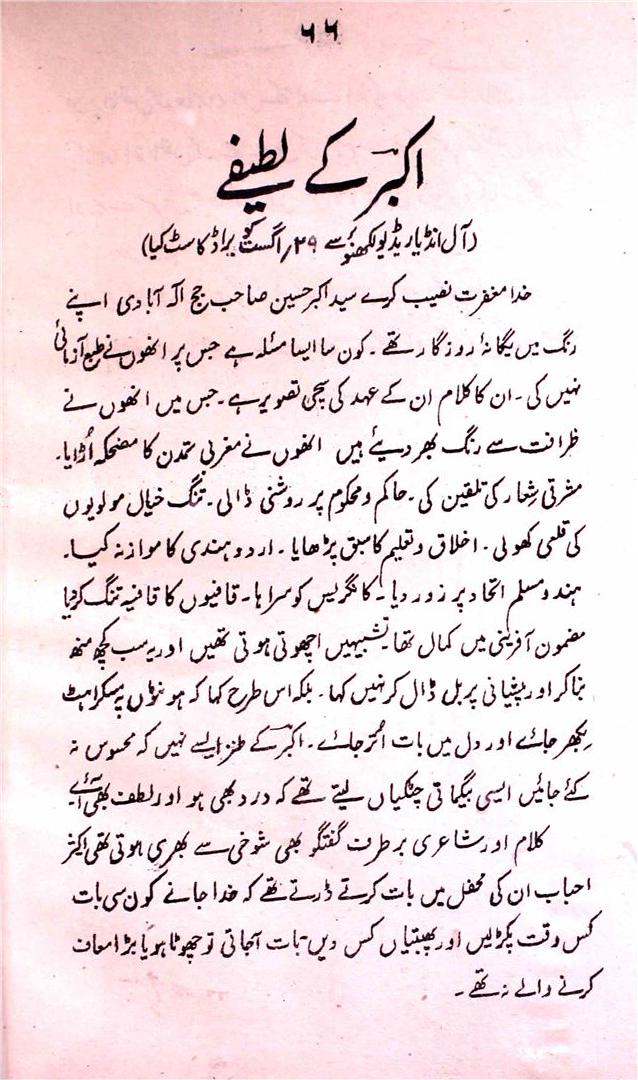 ۶۶
اکبر کے لطیفے
(آل انڈیا ریڈیو لکھنؤ پر سے ۲۹/اگست کو براڈ کاسٹ کیا)
خدا مغفرت نصیب کرے سید اکبر حسین صاحب جج الہ آبادی اپنے
رنگ میں یگانۂ روزگار تھے۔ کون سا ایسا مسئلہ ہے جس پر انھوں نے طبع آزمائی
نہیں کی۔ ان کا کلام ان کے عہد کی سچی تصویر ہے۔ جس میں انھوں نے
ظرافت سے رنگ بھر دیئے ہیں انھوں نے مغربی تمدن کا مضحکہ اُڑایا۔
مشرقی شعار کی تلقین کی۔ حاکم و محکوم پر روشنی ڈالی۔ تنگ خیال مولویوں
کی قلعی کھولی۔ اخلاق و تعلیم کا سبق پڑھایا۔ اردو ہندی کا موازنہ کیا۔
ہندو مسلم اتحاد پر زور دیا۔ کانگریس کو سراہا۔ قافیوں کا قافیہ تنگ کر دیا
مضمون آفرینی میں کمال تھا۔ تشبیہیں اچھوتی ہوتی تھیں اور یہ سب کچھ منھ
بنا کر اور پیشانی پر بل ڈال کر نہیں کہا۔ بلکہ اس طرح کہا کہ ہونٹوں پہ مسکراہٹ
بکھر جائے اور دل میں بات اُتر جائے۔ اکبر کے طنز ایسے نہیں کہ محسوس نہ
کئے جائیں ایسی بیگماتی چٹکیاں لیتے تھے کہ درد بھی ہو اور لطف بھی آئے۔
کلام اور شاعری بر طرف گفتگو بھی شوخی سے بھری ہوتی تھی اکثر
احباب ان کی محفل میں بات کرتے ڈرتے تھے کہ خدا جانے کون سی بات
کس وقت پکڑلیں اور پھبتیاں کس دیں۔ بات آجاتی تو چھوٹا ہو یا بڑا معاف
کرنے والے نہ تھے۔